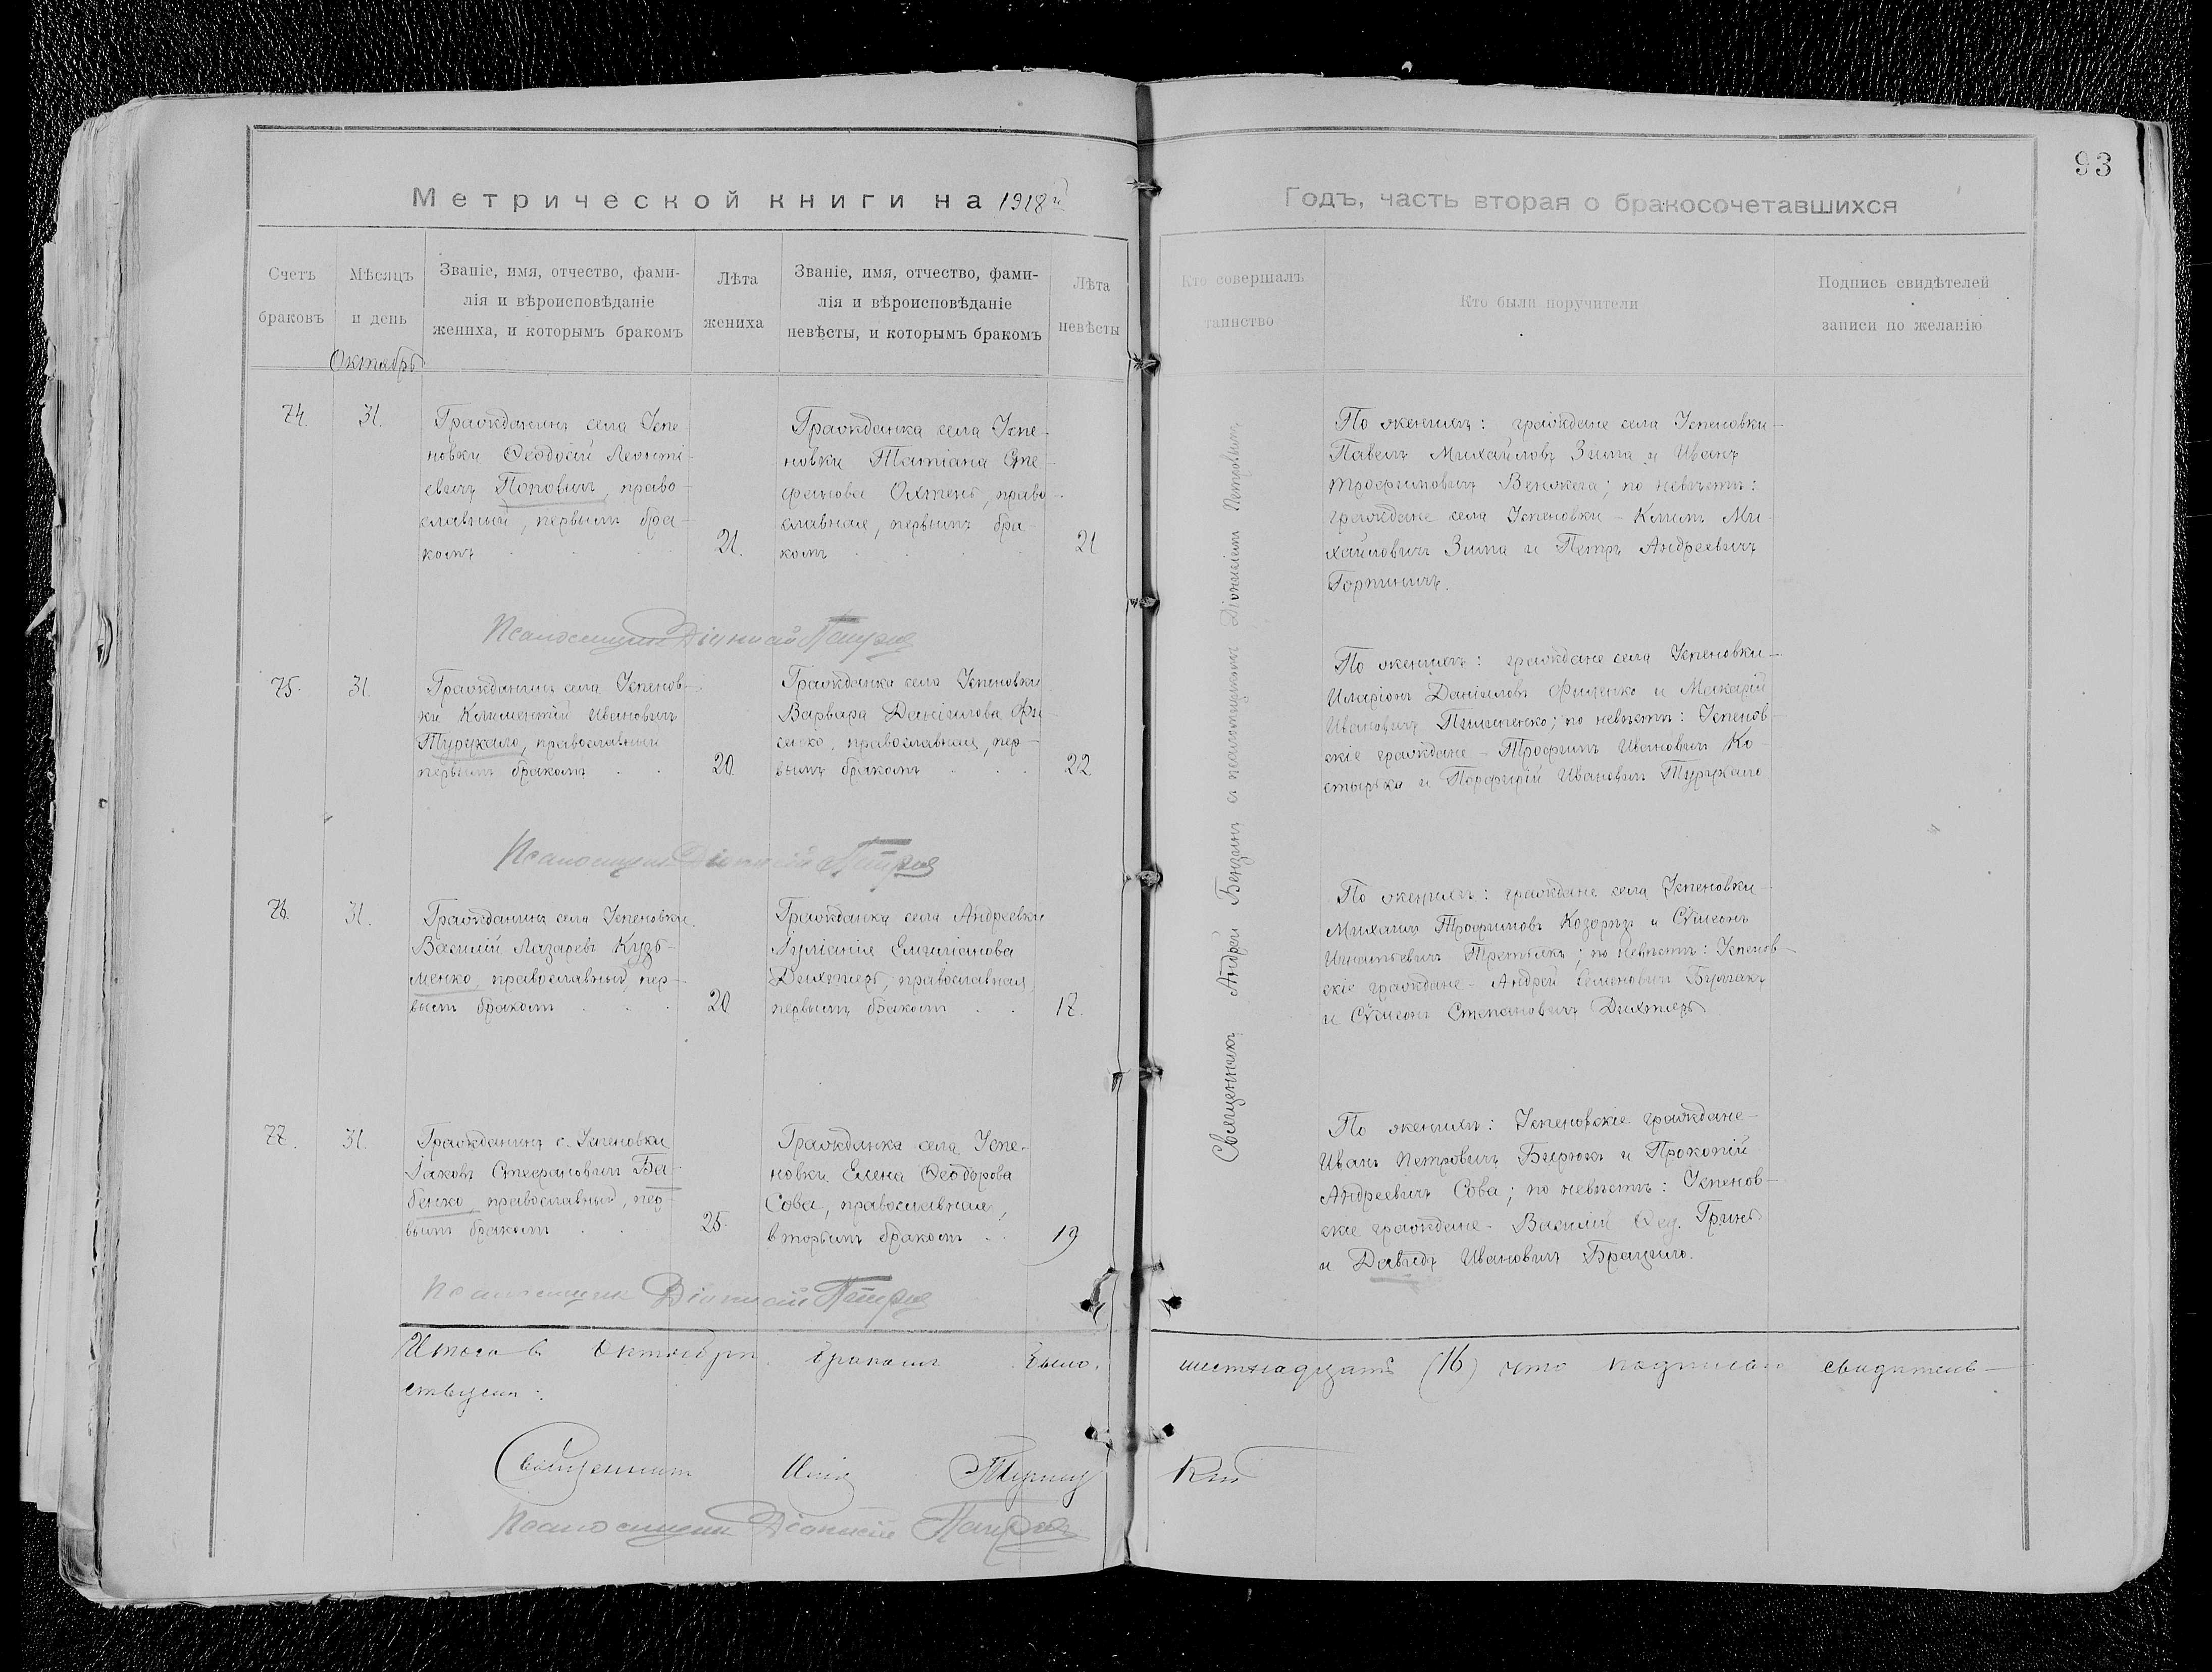 93
Метрической книги на 1918й
Годъ, часть вторая о бракосочетавшихся
Счетъ браковъ
Мѣсяцъ и день
Званіе, имя, отчество, фами-
лія и вѣроисповѣданіе
жениха, и которымъ бракомъ
Лѣта жениха
Званіе, имя, отчество, фами-
лія и вѣроисповѣданіе
невѣсты, и которымъ бракомъ
Лѣта невѣсты
Кто совершалъ таинство
Кто были поручители
Подпись свидѣтелей
записи по желанію
Октябрь
74.
31.
Гражданинъ села Успе-
новки Ѳеодосій Леонті-
евичъ Поповичъ, право-
славный, первымъ бра-
комъ
21.
Гражданка села Успе-
новки Татіана Сте-
фанова Охтень, право-
славная, первымъ бра-
комъ
21
По женихѣ: граждане села Успеновки-
Павелъ Михайловъ Зима и Иванъ
Трофимовичъ Венжега; по невѣстѣ:
граждане села Успеновки - Климъ Ми-
хайловичъ Зима и Петръ Андреевичъ
Горпиничъ.
Псаломщикъ Діонисій Петровъ
75.
31.
Гражданинъ села Успенов-
ки Климентій Ивановичъ
Турукало, православный
первымъ бракомъ
20
Гражданка села Успеновки
Варвара Даніилова Фи-
сенко, православная, пер-
вымъ бракомъ
22.
По женихѣ: граждане села Успеновки-
Иларіонъ Даніиловъ и Макарій
Ивановичъ; по невѣстѣ: Успенов-
скіе граждане - Трофимъ Ивановичъ Ко-
стырка и Порфирій Ивановичъ Турукало
Псаломщикъ Діонисій Петровъ
76.
31.
Гражданинъ села Успеновки
Василій Лазаревъ Кузь-
менко, православный, пер-
вымъ бракомъ
20
Гражданка села Андреевки
Іуліанія Емиліанова
Дихтярь, православная,
первымъ бракомъ
17.
По женихѣ: граждане села Успеновки-
Михаилъ Трофимовъ и Сѵмеонъ
Игнатьевичъ Третьякъ; по невѣстѣ: Успенов-
скіе граждане - Андрей Семеновичъ Бурлакъ
и Сѵмеонъ Степановичъ Дихтярь
77.
31.
Гражданинъ с. Успеновки
Іаковъ Стефановичъ Ба-
бенко, православный, пер-
вымъ бракомъ
25.
Гражданка села Успе-
новки Елена Ѳеодорова
Сова, православная,
вторымъ бракомъ
19
По женихѣ: Успеновскіе граждане-
Иванъ Петровичъ Бирюкъ и Прокопій
Андреевичъ Сова; по невѣстѣ: Успенов-
скіе граждане - Василій Ѳед. Гринь
и Давидъ Ивановичъ
Псаломщикъ Діонисій Петровъ
Священникъ Андрей Бензинъ съ псаломщикомъ Діонисіемъ Петровымъ
Итого въ Октябрѣ браковъ было шестнадцать (16) что подписью свидѣтель-
ствуемъ:
Священникъ
Псаломщикъ Діонисій Петровъ